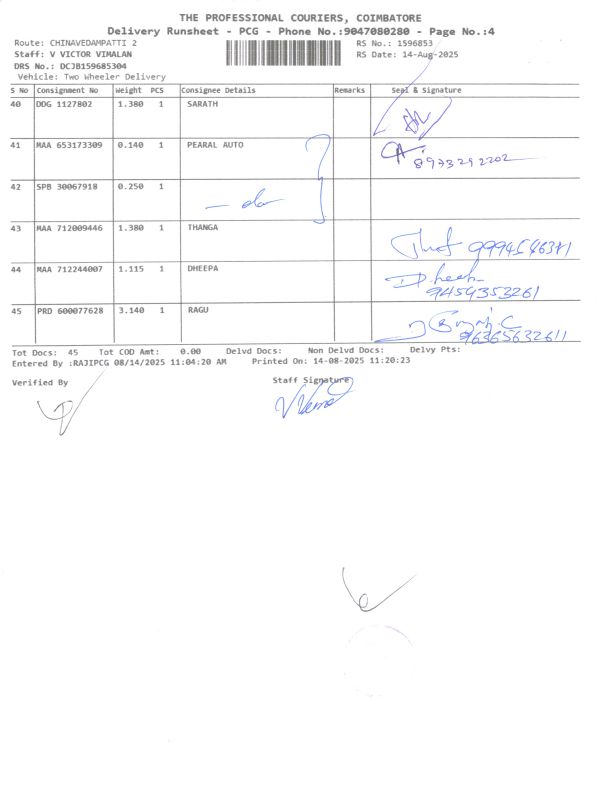 THE PROFESSIONAL COURIERS, COIMBATORE
Delivery Runsheet - PCG - Phone No.:9047080280 - Page No.:4
Route: CHINAVEDAMPATTI 2 RS No.: 1596853
Staff: V VICTOR VIMALAN RS Date: 14-Aug-2025
DRS No.: DCJB159685304
Vehicle: Two Wheeler Delivery
S No Consignment No Weight PCS Consignee Details Remarks Seal & Signature
40 DDG 1127802 1.380 1 SARATH
41 MAA 653173309 0.140 1 PEARAL AUTO
8973292202
42 SPB 30067918 0.250 1
43 MAA 712009446 1.380 1 THANGA
44 MAA 712244007 1.115 1 DHEEPA
9459353261
45 PRD 600077628 3.140 1 RAGU
Tot Docs: 45 Tot COD Amt: 0.00 Delvd Docs: Non Delvd Docs: Delvy Pts:
Entered By :RAJIPCG 08/14/2025 11:04:20 AM Printed On: 14-08-2025 11:20:23
Verified By Staff Signature